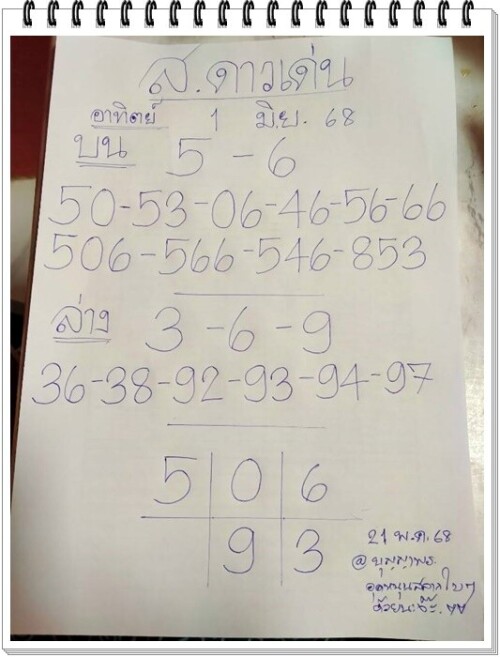 ส.ดาวเด่น
อาทิตย์ 1 มิ.ย. 68
บน 5 - 6
50-53-06-46-56-66
506-566-546-853
ล่าง 3 - 6 - 9
36-38-92-93-94-97
5 0 6
9 3
21 พ.ค.68
@บุญญาพร
อุดหนุนสลากใบๆ
ด้วยนะ